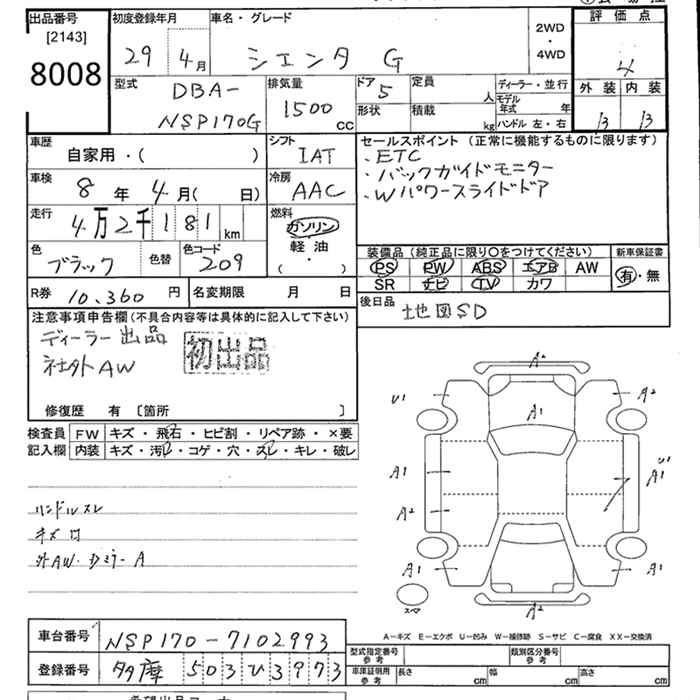 出品番号
[2143]
8008
初度登録年月
29 4月
車名・グレード
シエンタ G
2WD
・
4WD
評価点
4
外装 内装
B B
型式
DBA-
NSP170G
排気量
1500
CC
ドア
5
形状
定員
人
積載
kg
ディーラー・並行
モデル年式 年
ハンドル 左・右
車歴
自家用・( )
シフト
IAT
セールスポイント (正常に機能するものに限ります)
・ETC
・バックガイドモニター
・Wパワースライドドア
車検
8 年 4 月( 日)
冷房
AAC
走行
4万2千181 km
燃料
ガソリン
軽油
( ・ )
色
ブラック
色替
色コード
209
装備品 (純正品に限り○をつけてください)
PS PW ABS エアB AW
SR ナビ TV カワ
新車保証書
有・無
R券
10,360 円
名変期限 月 日
後日品
地図SD
注意事項申告欄(不具合内容等は具体的に記入して下さい)
ディーラー出品
社外AW
初出品
修復歴 有 [箇所 ]
検査員記入欄
FW キズ・飛石・ヒビ割・リペア跡・×要
内装 キズ・汚レ・コゲ・穴・スレ・キレ・破レ
ハンドルスレ
キズ
外AW.
A
A2
U1
A2
A1
A1
A2
U1
A1
A1
A1
A2
スペア
A-キズ E-エクボ U-凹み W-補修跡 S-サビ C-腐食 XX-交換済
車台番号
NSP170-7102993
登録番号
多摩 503ひ3973
型式指定番号
参考
類別区分番号
参考
車庫証明用
参考
長さ cm
幅 cm
高さ cm